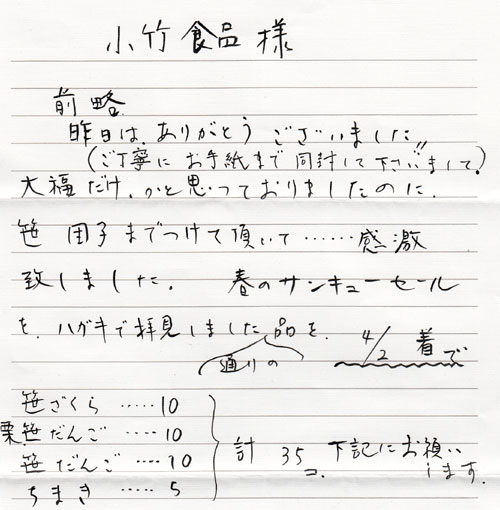 小竹食品様
前略
昨日は、ありがとうございました!!
(ご丁寧にお手紙まで同封して下さいまして。)
大福だけ、かと思っておりましたのに、
笹団子までつけて頂いて……感激
致しました。 春のサンキューセール
を、ハガキで拝見しました品を、 4/2 着で
通りの
笹ざくら ……10
栗笹だんご ……10
笹だんご ……10
ちまき ……5
計 35コ、下記にお願いします。